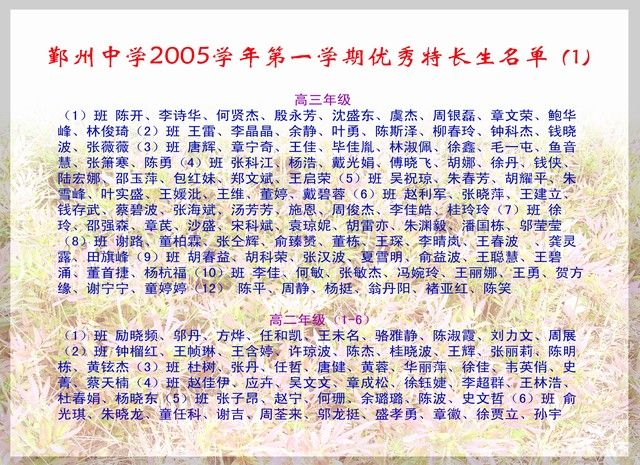 鄞州中学2005学年第一学期优秀特长生名单（1）
高三年级
（1）班 陈开、李诗华、何贤杰、殷永芳、沈盛东、虞杰、周银磊、章文荣、鲍华
峰、林俊琦（2）班 王雷、李晶晶、余静、叶勇、陈斯泽、柳春玲、钟科杰、钱晓
波、张薇薇（3）班 唐辉、章宁奇、王佳、毕佳胤、林淑佩、徐鑫、毛一屯、鱼音
慧、张箫寒、陈勇（4）班 张科江、杨浩、戴光娟、傅晓飞、胡娜、徐丹、钱侠、
陆宏娜、邵玉萍、包红妹、郑文斌、王启荣（5）班 吴祝琼、朱春芳、胡耀平、朱
雪峰、叶实盛、王媛沘、王维、董婷、戴碧蓉（6）班 赵利军、张晓萍、王建立、
钱存武、蔡碧波、张海斌、汤芳芳、施恩、周俊杰、李佳皓、桂玲玲（7）班 徐
玲、邵强森、章芪、沙盛、宋科斌、袁琼妮、胡雷亦、朱渊毅、潘国栋、邬莹莹
（8）班 谢路、童柏霖、张仝辉、俞臻赟、董栋、王琛、李晴岚、王春波 、龚灵
露、田旗峰（9）班 胡春益、胡科荣、张汉波、夏雪明、俞益波、王聪慧、王碧
涌、董首捷、杨杭福（10）班 李佳、何敏、张敏杰、冯婉玲、王丽娜、王勇、贺方
缘、谢宁宁、童婷婷（12） 陈平、周静、杨挺、翁丹阳、褚亚红、陈笑
高二年级（1-6）
（1）班 励晓频、邬丹、方烨、任和凯、王未名、骆雅静、陈淑霞、刘力文、周展
（2）班 钟榴红、王帧琳、王含婷、许琼波、陈杰、桂晓波、王辉、张丽莉、陈明
栋、黄铉杰（3）班 杜树、张丹、任哲、唐健、黄蓉、华丽萍、徐佳、韦英俏、史
菁、蔡天楠（4）班 赵佳伊、应卉、吴文文、章成松、徐钰婕、李超群、王林浩、
杜春娟、杨晓东（5）班 张子昂、赵宁、何珊、余璐璐、陈波、史文哲（6）班 俞
光琪、朱晓龙、童任科、谢吉、周荃来、邬龙挺、盛孝勇、章徽、徐贾立、孙宇